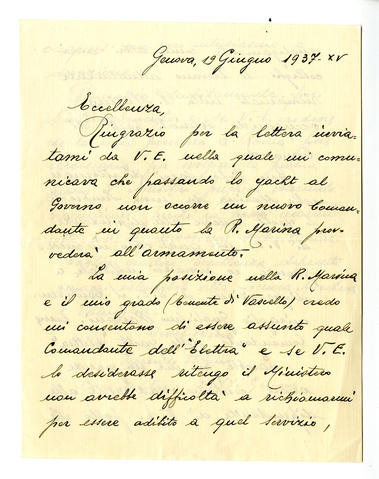 Genova, 19 Giugno 1937-XV
Eccellenza,
Ringrazio per la lettera invia-
tami da V. E. nella quale mi comu-
nicava che passando lo yacht al
Governo non occorre un nuovo Coman-
dante in quanto la R. Marina prov-
vederà all'armamento.
La mia posizione nella R. Marina
e il mio grado (Tenente di Vascello), credo
mi consentano di essere assunto quale
Comandante dell'"Elettra" e se V. E.
lo desiderasse ritengo il Ministero
non avrebbe difficoltà a richiamarmi
per essere adibito a quel servizio,